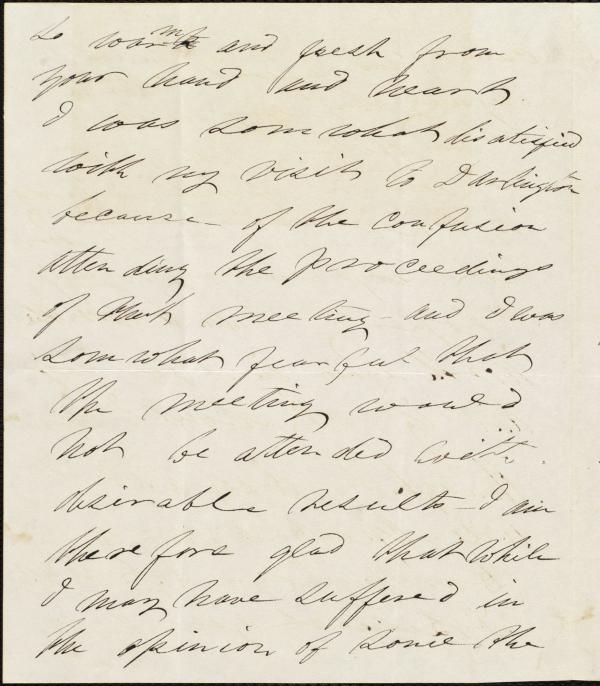 so warm and fresh from
your hand and heart
I was somewhat disatisfied
with my visit to Darlington
because of the confusion
attending the proceedings
of that meeting - and I was
somwhat fearful that
the meeting would
not be attended with
desirable results - I am
therefore glad that while
I may have suffered in
the opinion of some the